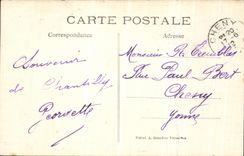 CARTE POSTALE
Correspondance
Adresse
Souvenir
de Chantilly
Georgette
Monsieur R.
Rue Paul Bert
Cheny
Yonne
CHENY